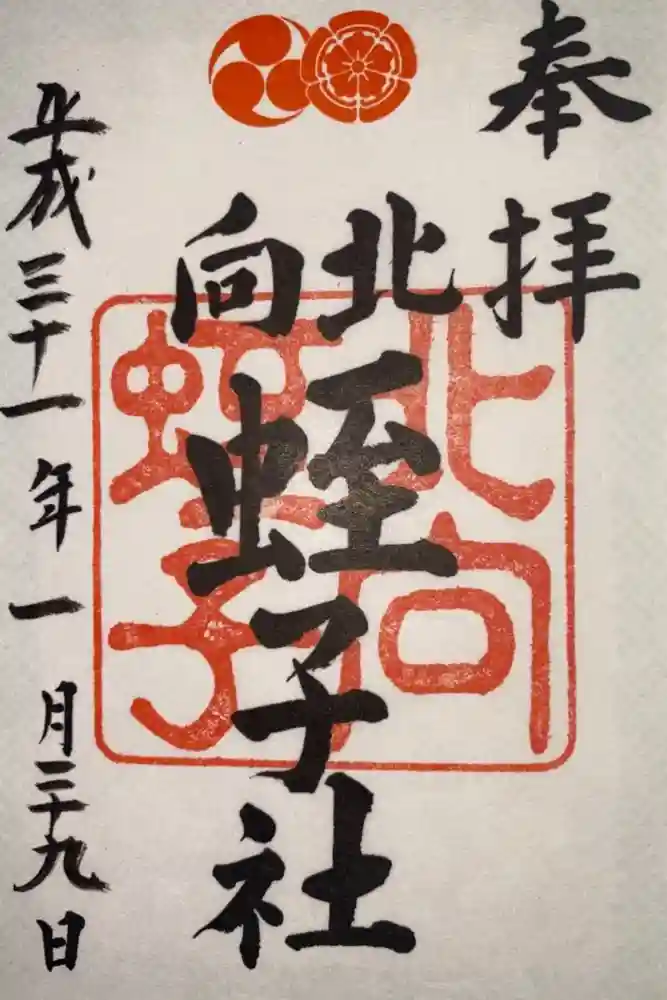 奉拝
北向
蛭子社
平成三十一年一月二十九日
北向
蛭子